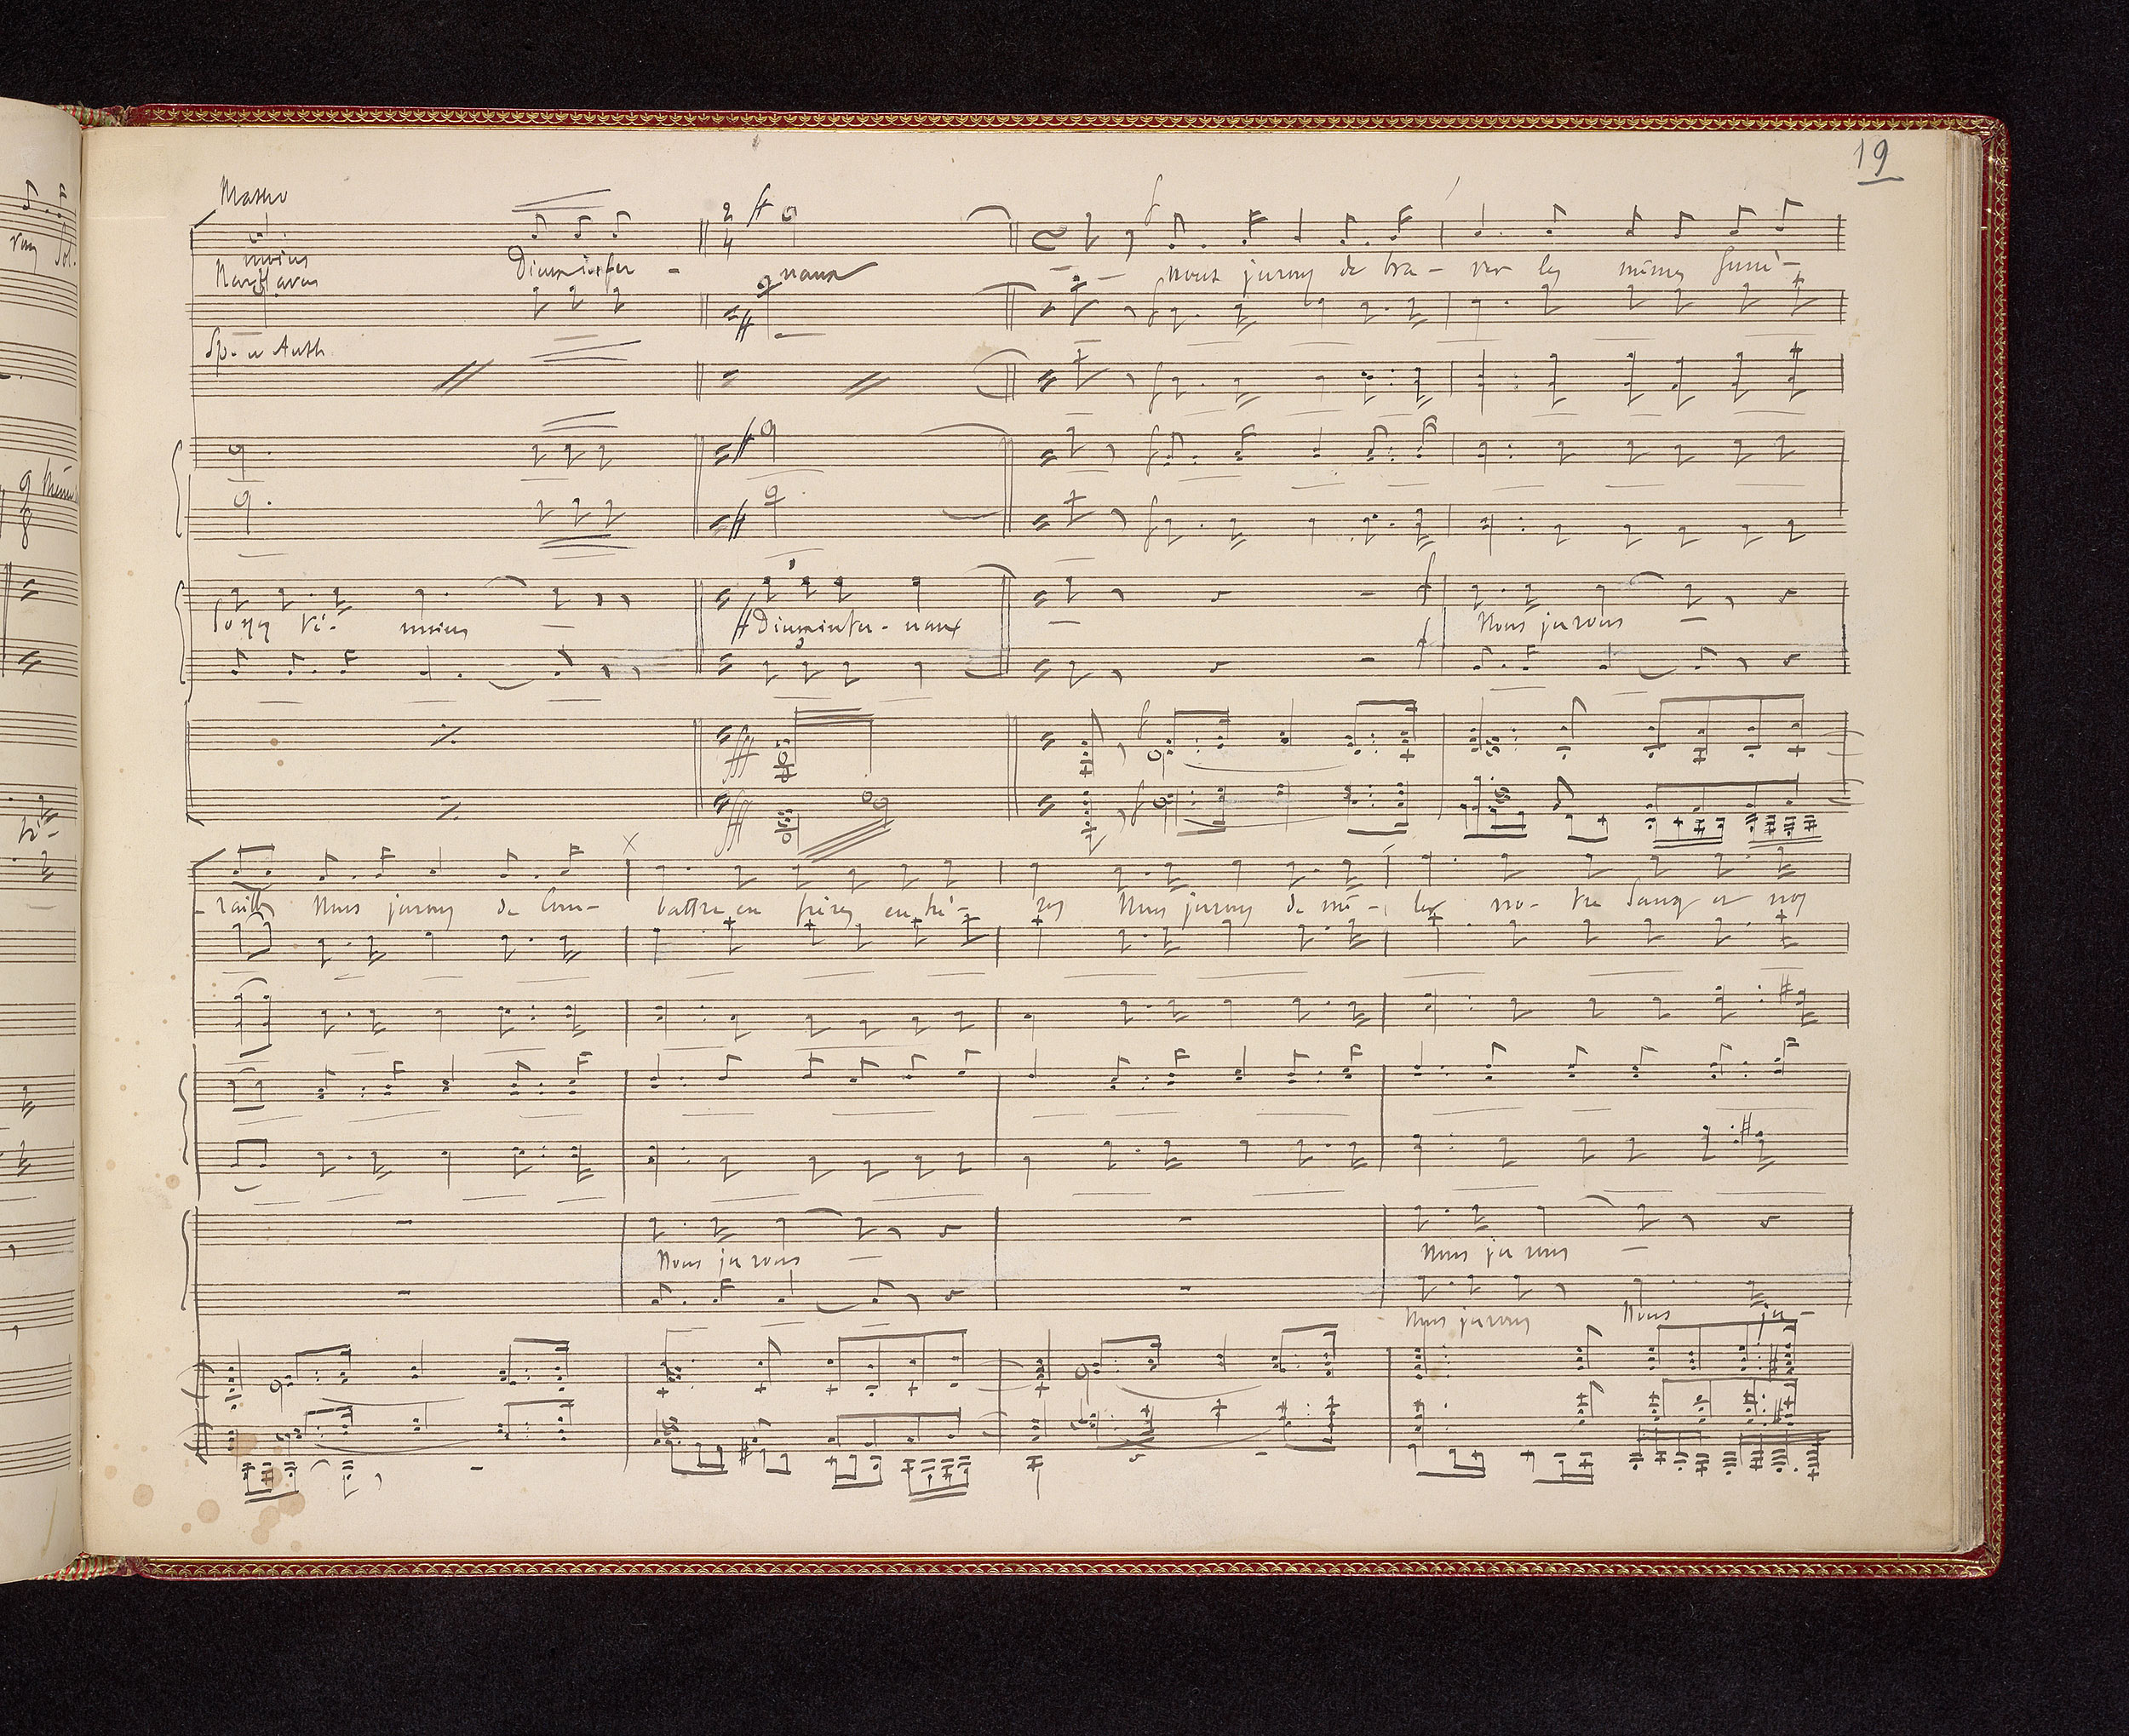 19
Matho
moins
Narr'havas
Dieux infer -
naux
Nous jurons de bra - ver les mêmes funé -
Sp. et Auth
Soyez té - moins
Dieux infer - naux
Nous jurons
- railles Nous jurons de com - battre en frères en hé - ros Nous jurons de mê - ler no - tre sang et nos
Nous jurons
Nous jurons
Nous jurons Nous ju -